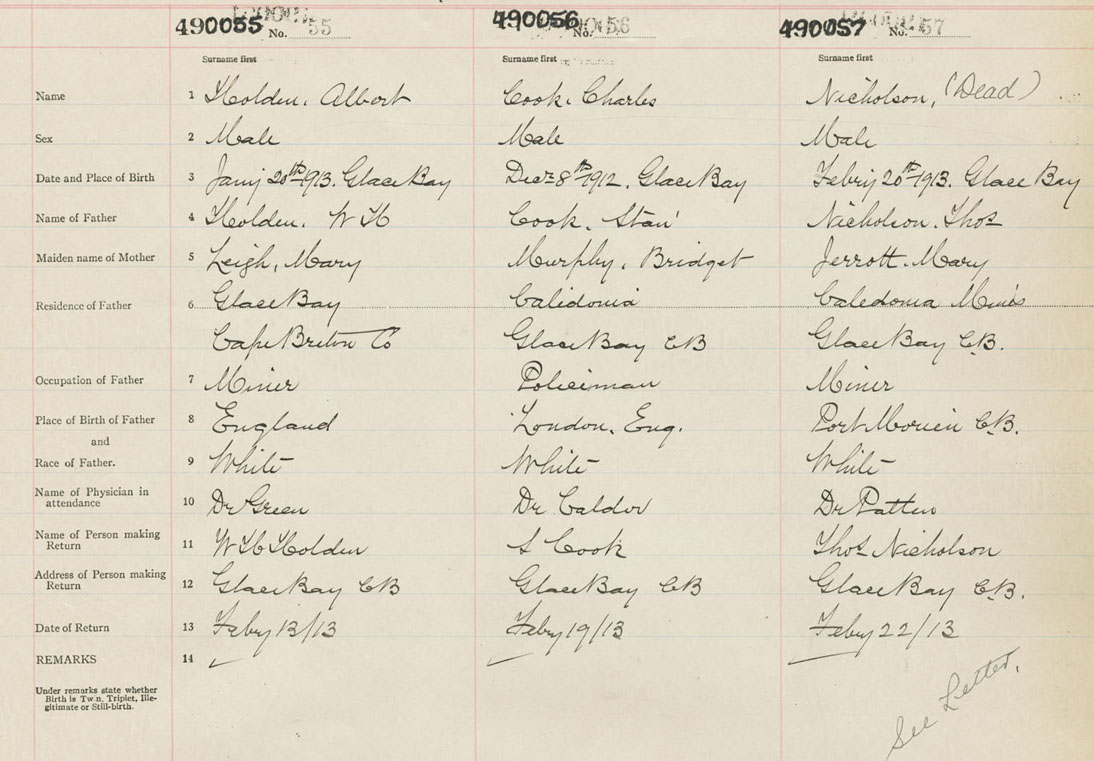 490055 No. 55 490056 No. 56 490057 No. 57
Surname first Surname first Surname first
Name 1 Holden, Albert Cook, Charles Nicholson, (Dead)
Sex 2 Male Male Male
Date and Place of Birth 3 Jany 20th 1913. Glace Bay Decr 8th 1912, Glace Bay Febry 20th 1913. Glace Bay
Name of Father 4 Holden, W H Cook, Stan' Nicholson, Thos
Maiden name of Mother 5 Leigh, Mary Murphy, Bridget Jerrott, Mary
Residence of Father 6 Glace Bay Calidonia Caledonia Mines
Cape Breton Co Glace Bay CB Glace Bay C.B.
Occupation of Father 7 Miner Policiman Miner
Place of Birth of Father 8 England London, Eng. Port Morien C.B.
and
Race of Father. 9 White White White
Name of Physician in
attendance 10 Dr Green Dr Dr Patten
Name of Person making
Return 11 W H Holden S Cook Thos Nicholson
Address of Person making
Return 12 Glace Bay CB Glace Bay CB Glace Bay C.B.
Date of Return 13 Feby 13/13 Febry 19/13 Feby 22/13
REMARKS 14
Under remarks state whether
Birth is Twin, Triplet, Ille-
gitimate or Still-birth.
See Letter.